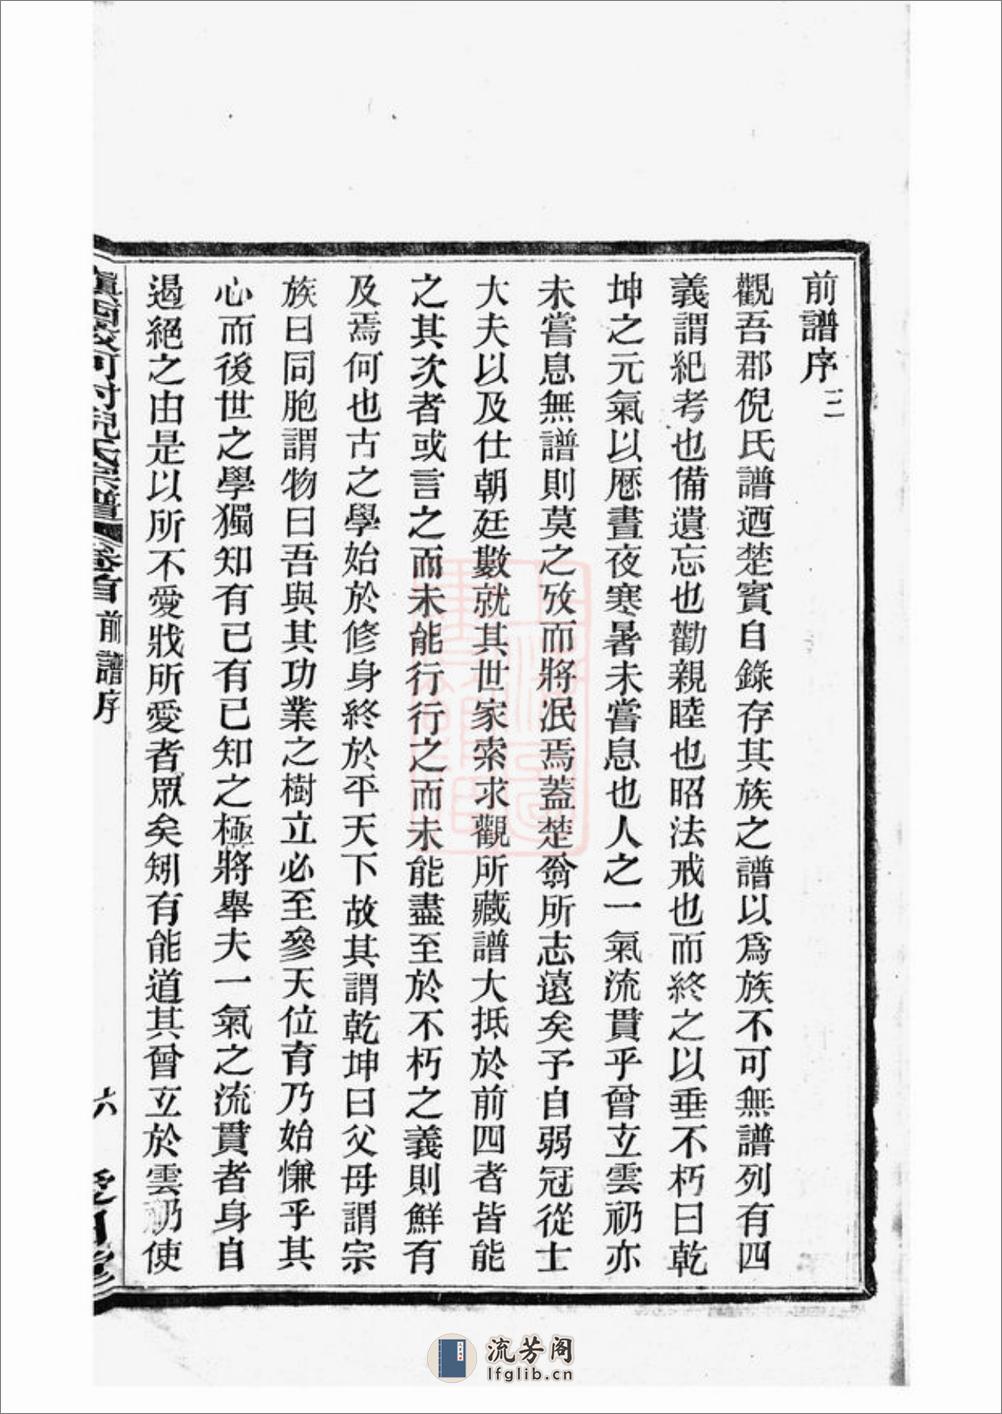 前譜序三
觀吾郡倪氏譜迺楚賓自錄存其族之譜以爲族不可無譜列有四
義謂紀考也備遺忘也勸親睦也昭法戒也而終之以垂不朽曰乾
坤之元氣以歷晝夜寒暑未嘗息也人之一氣流貫乎曾立雲礽亦
未嘗息無譜則莫之攷而將泯焉蓋楚翁所志遠矣予自弱冠從士
大夫以及仕朝廷數就其世家索求觀所藏譜大抵於前四者皆能
之其次者或言之而未能行行之而未能盡至於不朽之義則鮮有
及焉何也古之學始於修身終於平天下故其謂乾坤曰父母謂宗
族曰同胞謂物曰吾與其功業之樹立必至參天位育乃始慊乎其
心而後世之學獨知有己有己知之極將舉夫一氣之流貫者身自
遏絕之由是以所不愛戕所愛者眾矣矧有能道其曾立於雲礽使
河村倪氏宗譜 卷首 前譜序
六
流芳阁
lfglib.cn